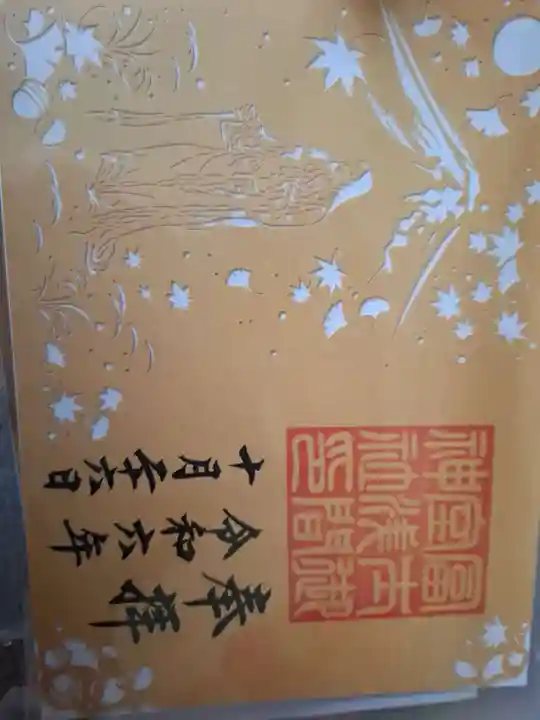 奉拝
令和六年
十月二十六日
冨士御
室浅間
神社印